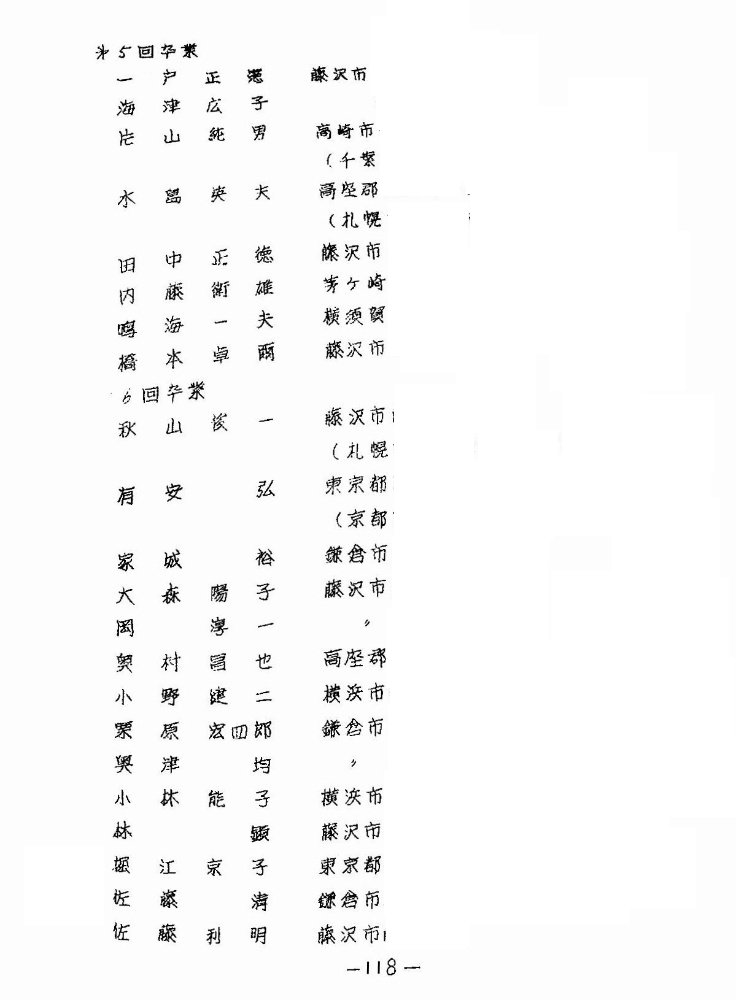 第5回卒業
一戸正 藤沢市
海津広子
片山純男 高崎市
(千葉
水留英夫 高座郡
(札幌
田中正徳 藤沢市
内藤衛雄 茅ケ崎
鳴海一夫 横須賀
橋本卓爾 藤沢市
6回卒業
秋山俊一 藤沢市
(札幌
有安 弘 東京都
(京都
家城 裕 鎌倉市
大森陽子 藤沢市
岡 淳一 〃
奥村昌也 高座郡
小野建二 横浜市
栗原宏四郎 鎌倉市
興津 均 〃
小林能子 横浜市
林 顕 藤沢市
堀江京子 東京都
佐藤 清 鎌倉市
佐藤利明 藤沢市
-118-